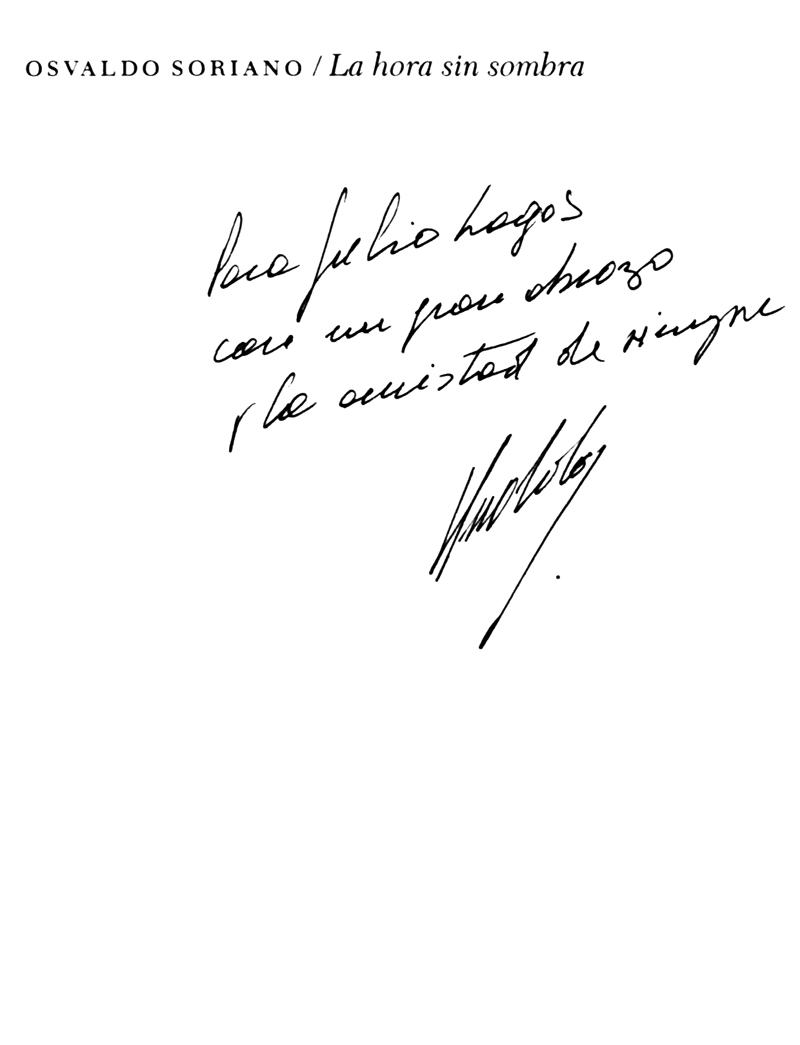 OSVALDO SORIANO / La hora sin sombra
Para Julio Lagos
con un gran abrazo
y la amistad de siempre